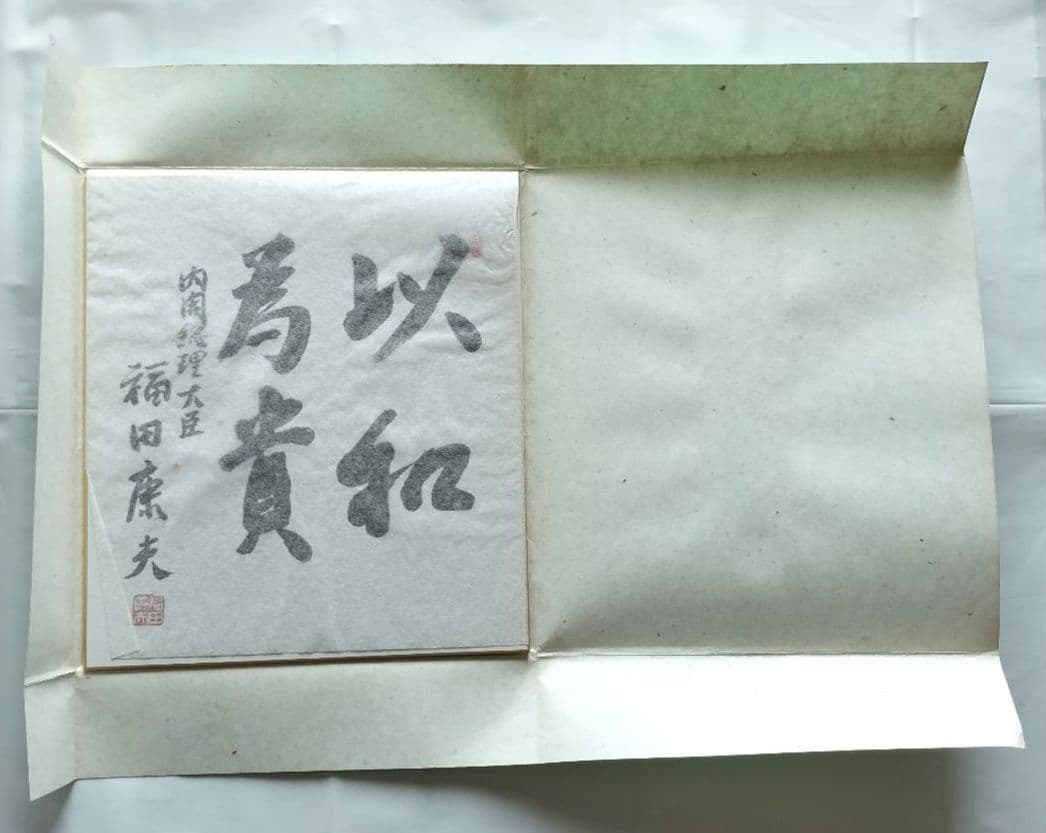 以和
為貴
内閣総理大臣
福田康夫